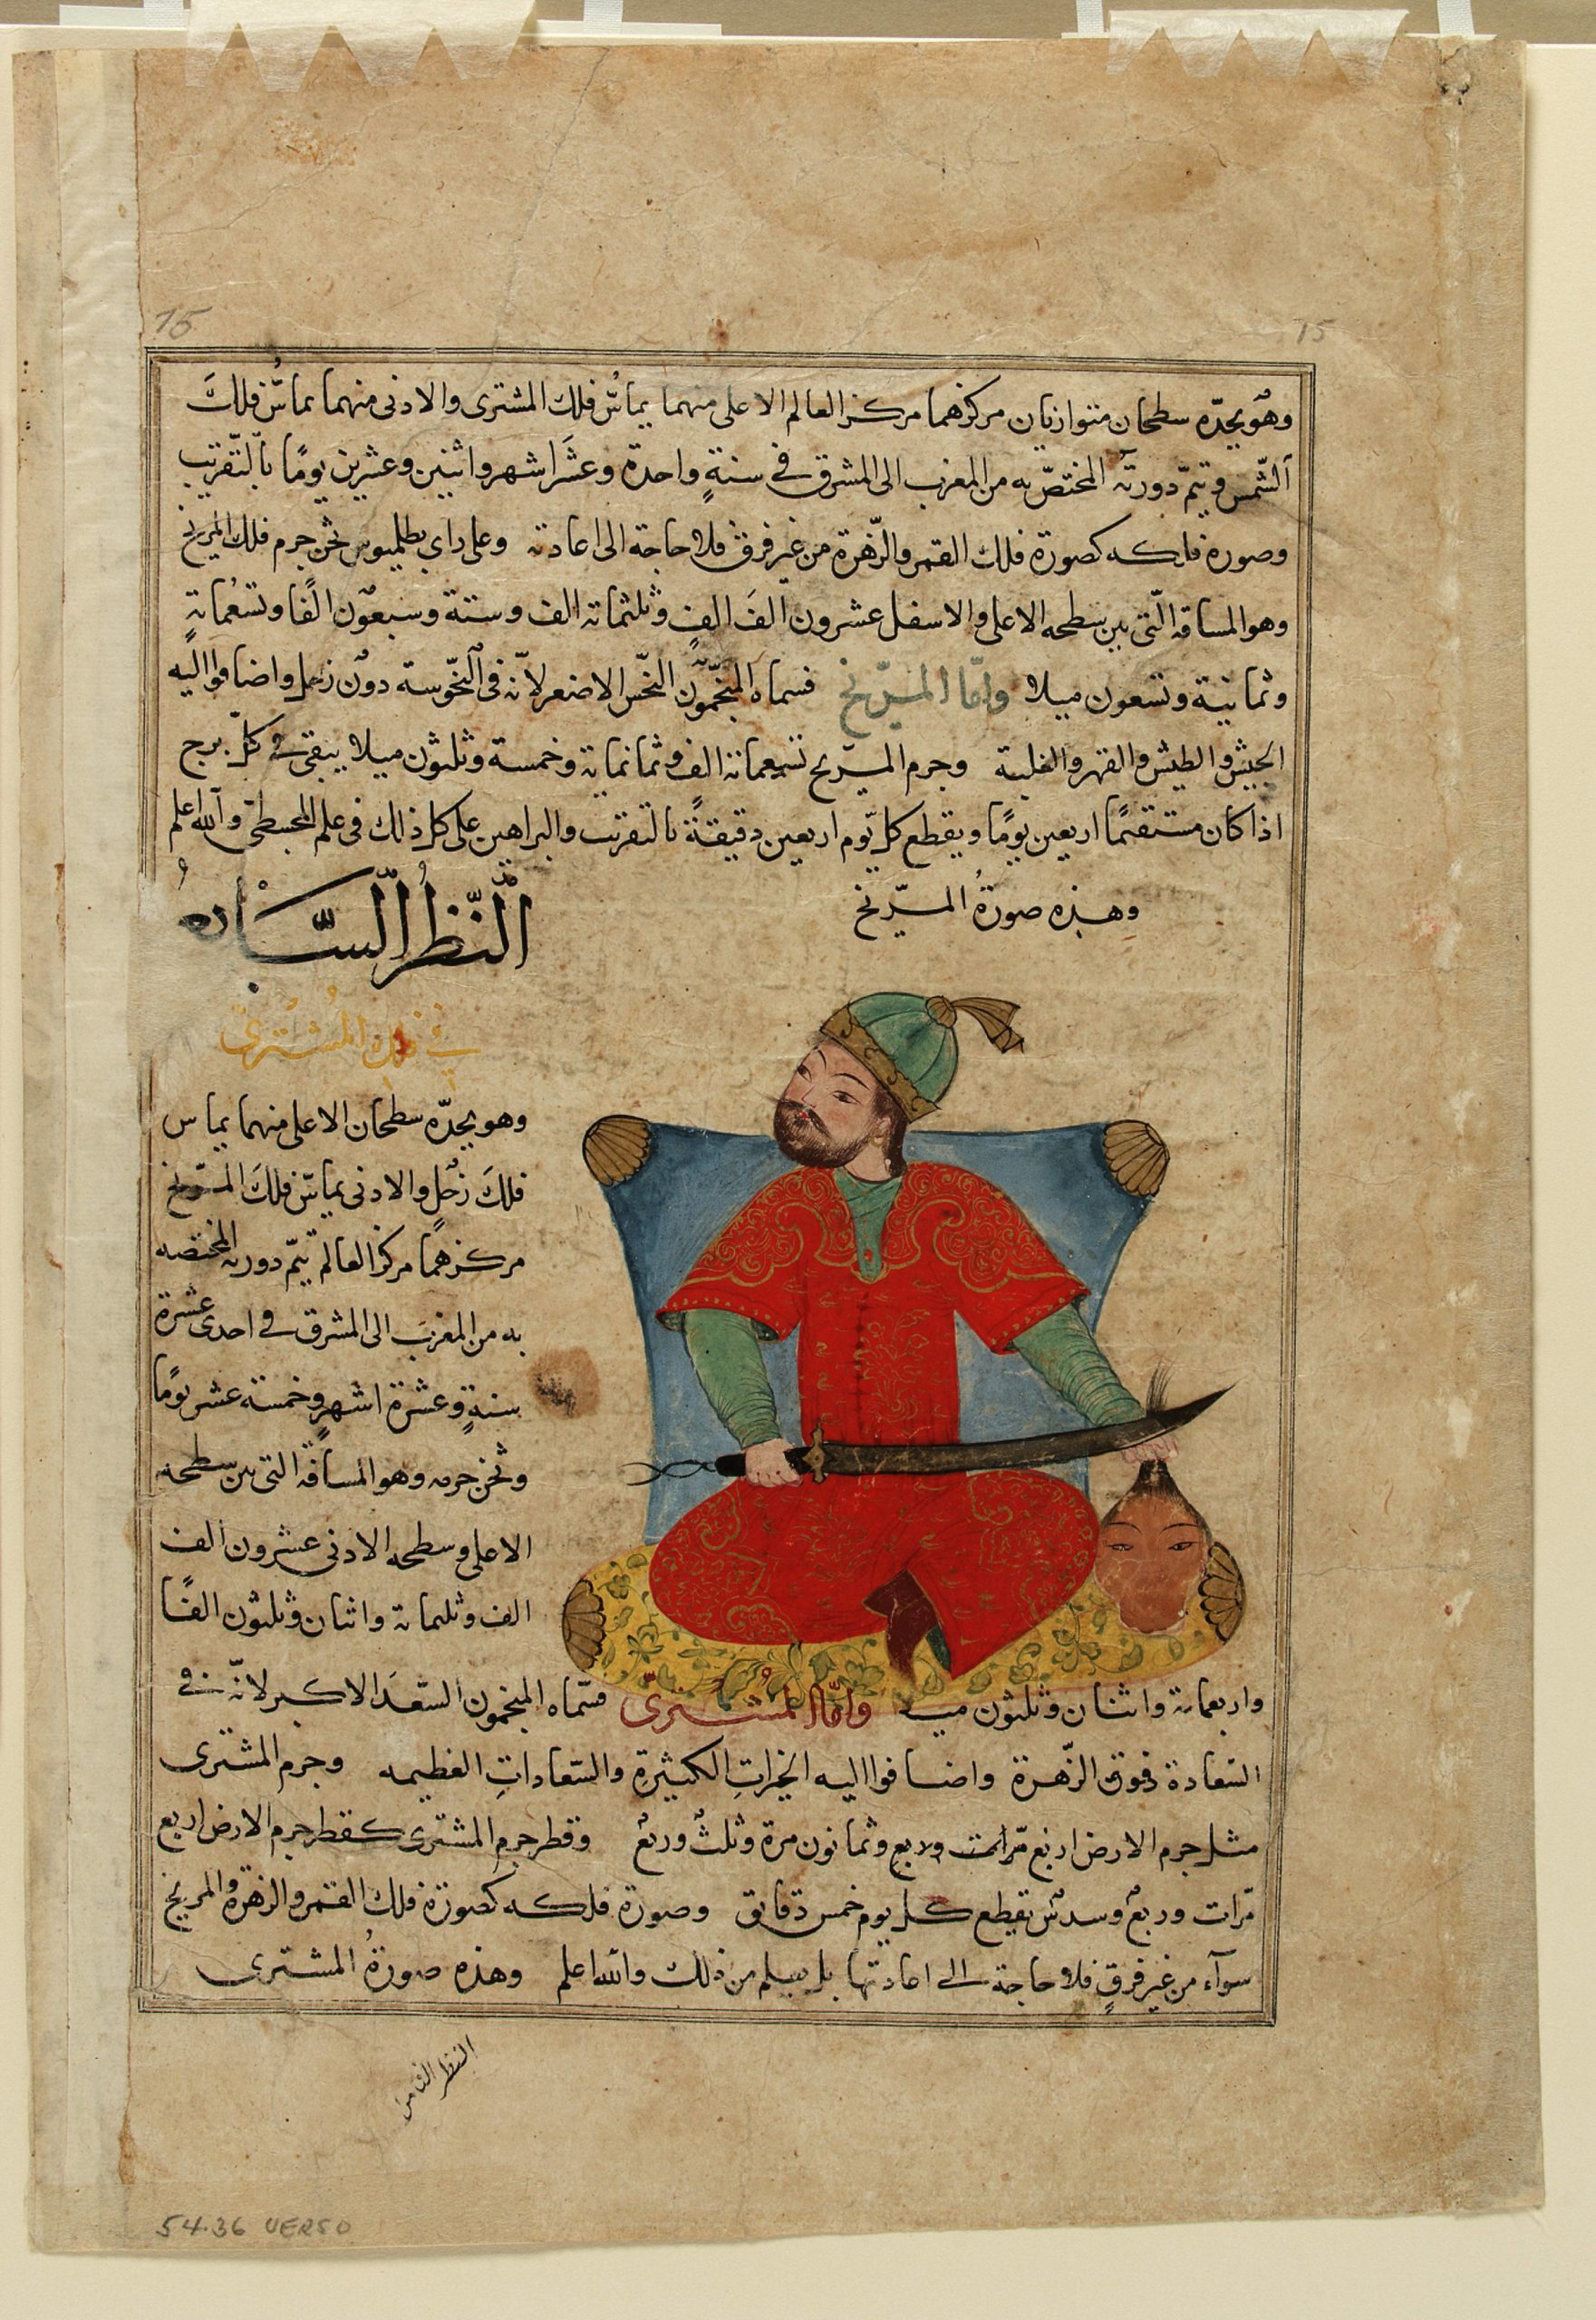 15
15
وهو يحدّه سطحان متوازيان مركزهما مركز العالم الاعلى منهما يماسّ فلك المشترى والادنى منهما يماسّ فلك
الشّمس وتيمّ دورته المختصّ به من المغرب الى المشرق فى سنةٍ واحدة وعشَر اشهر واثنين وعشرين يومًا بالتّقريب
وصورة فلكه كصورة فلك القمر والزّهرة من غير فرق فلا حاجة الى اعادته وعلى راى بطلميوس ثخن جرم فلك المريخ
وهو المسافة الّتى بين سطحه الاعلى والاسفل عشرون الفَ الفٍ وثلثمائة الف وستة وسبعون الفًا وتسعمائةٍ
وثمانية وتسعون ميلا وامّا المريّخ فسماه المنجّمون النحّس الاصغر لانّه فى النّحوسة دون زحل واضافوا اليه
الجيش والطيش والقهر والغلبة وجرم المريّخ تسعمائة الف وثمانمائة وخمسة وثلثون ميلا يبقى فى كلّ برج
اذا كان مستقيمًا اربعين يومًا ويقطع كل يّوم اربعين دقيقةً بالتقريب والبراهين على كل ذلك فى علم المجسطى والله اعلم
وهذه صورةُ المريّخ
النّظرُ السّابع
فى فلك المُشترىِ
وهو يحدّه سطحان الاعلى منهما يماس
فلكَ زحُل والادنى يماسّ فلكَ المريّخ
مركزهما مركز العالم تيمّ دورته المختصه
به من المغربَ الى المشرق فى احدى عشرة
سنةٍ وعشرة اشهرٍ وخمسة عشر يومًا
وثخن جرمه وهو المسافة التى بين سطحه
الاعلى وسطحه الادنى عشرون الف
الف وثلثمائة واثنان وثلثون الفًا
واربعمائة واثنان وثلثون ميلا وامّا المُشترىّ فسّماه المنجمون السّعدَ الاكبر لانّه فى
السّعادة فوق الزّهرة واضافوا اليه الخيراتِ الكثيرةِ والسّعاداتِ العظيمه وجرم المشترى
مثل جرم الارض اربع مرّات وربع وثمانون مرة وثلثٌ وربعٌ وقطر جرم المشترى كقطر جرم الارض اربع
مرّات وربعٌ وسدسٌ يقطع كل يوم خمس دقايق وصورة فلكه كصورة فلك القمر والزهرة والمريخ
سوآء من غير فرقٍ فلا حاجة الى اعادتها بل يعلم من ذلك والله اعلم وهذه صورةُ المشترى
النظر الثامن
54.36 VERSO